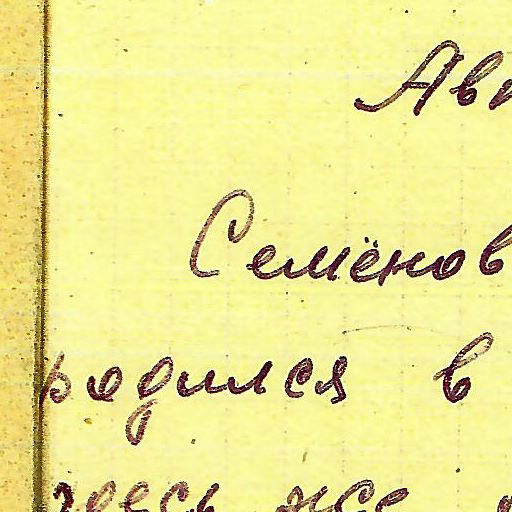 Авт
Семёнов
родился в
здесь же